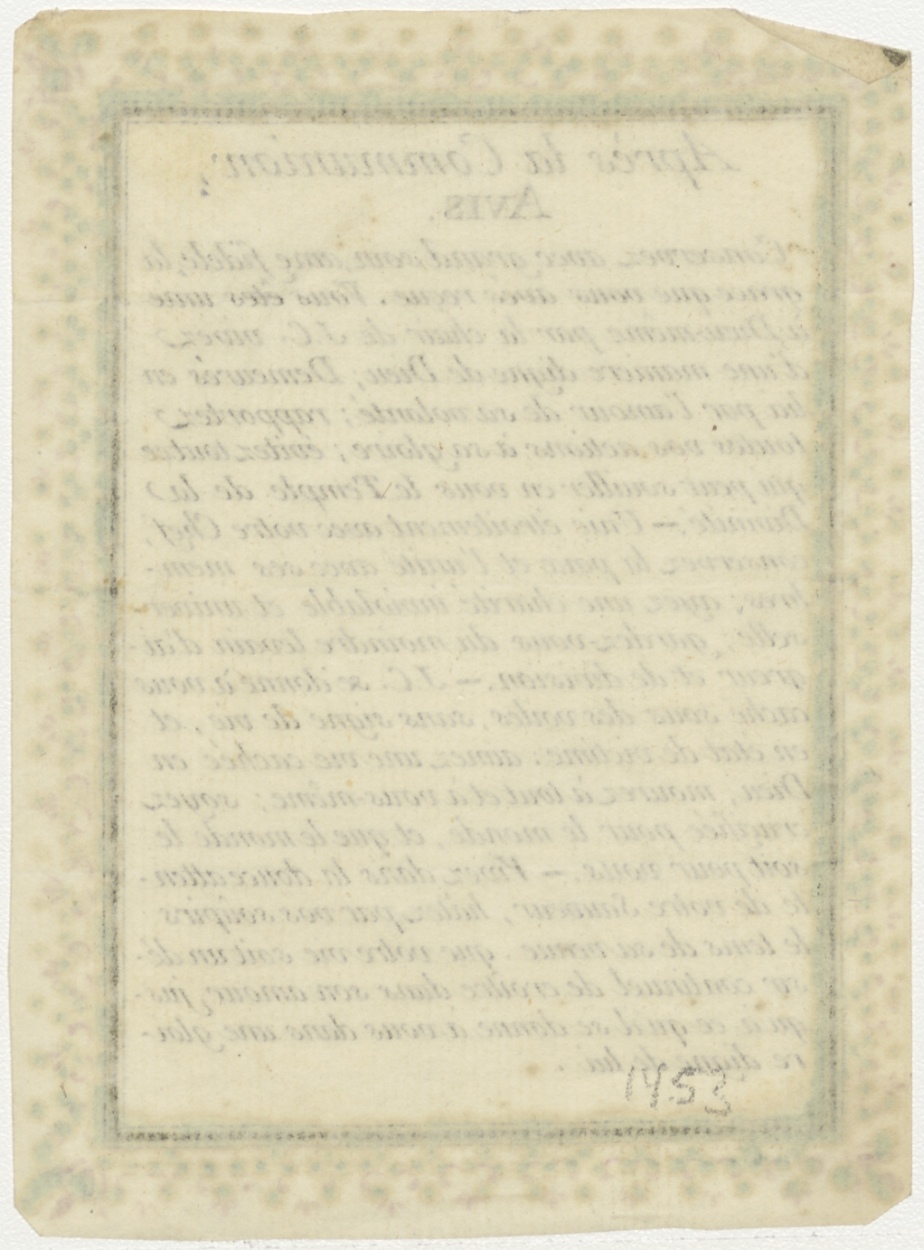 Après la Communion,
AVIS.
Conservez avec grand soin, ame fidele, la
grace que vous avez reçue. Vous êtes unie
à Dieu même par la chair de J.C. vivez
d'une maniere digne de Dieu; Demeurés en
lui par l'amour de sa volonté; rapportez
toutes vos actions à sa gloire; évitez tout ce
qui peut souiller en vous le Temple de la
Divinité. — Unie étroitement avec votre Chef,
conservez la paix et l'unité avec ses mem-
bres; ayez une charité inviolable et univer
selle; gardez-vous du moindre levain d'ai-
greur et de division. — J.C. se donne à vous
caché sous des voiles, sans signe de vie, et
en état de victime; aimez une vie cachée en
Dieu, mourez à tout et à vous-même; soyez
crucifiée pour le monde, et que le monde le
soit pour vous. — Vivez dans la douce atten-
te de votre Sauveur, hâtez par vos soupirs
le tems de sa venue. que votre vie soit un dé-
sir continuel de croître dans son amour, jus-
qu'à ce qu'il se donne à vous dans une gloi-
re digne de lui.
1453